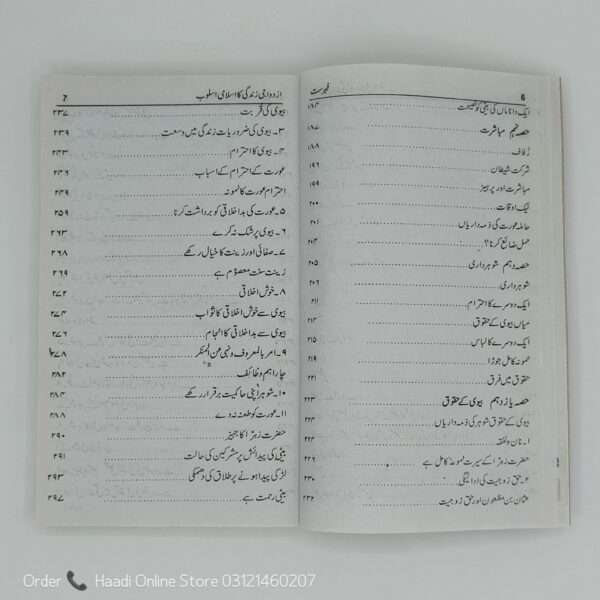 6 فہرست
ایک دانا ماں کی بیٹی کو نصیحت ۱۸۴
حصہ نہم مباشرت ۱۸۷
زفاف ۱۸۸
شرکت شیطان ۱۹۶
مباشرت اور پرہیز ۱۹۹
نیک اوقات ۲۰۰
حاملہ عورت کی ذمہ داریاں ۲۰۱
حمل ضائع کرنا؟ ۲۰۳
حصہ دہم شوہر داری ۲۰۵
شوہر داری ۲۰۵
ایک دوسرے کا احترام ۲۱۱
میاں بیوی کے حقوق ۲۱۳
ایک دوسرے کا لباس ۲۱۵
نمونہ کامل جوڑا ۲۱۹
حقوق میں فرق ۲۲۱
حصہ یازدہم بیوی کے حقوق ۲۲۳
بیوی کے حقوق شوہر کی ذمہ داریاں ۲۲۳
۱۔ نان و نفقہ ۲۲۴
حضرت زہرا کے سیرت نمونہ کامل ہے ۲۲۶
۲۔ حق زوجیت کی ادائیگی ۲۳۰
عثمان بن مظعون اور حق زوجیت ۲۳۶
ازدواجی زندگی کا اسلامی اسلوب 7
بیوی کی قربت ۲۳۷
۳۔ بیوی کی ضروریات زندگی میں وسعت ۲۳۹
۴۔ بیوی کا احترام ۲۴۳
عورت کے احترام کے اسباب ۲۴۶
احترام عورت کا نمونہ ۲۴۹
۵۔ عورت کی بد اخلاقی کو برداشت کرنا ۲۵۹
۶۔ بیوی پر شک نہ کرے ۲۶۳
۷۔ صفائی اور زینت کا خیال رکھے ۲۶۸
زینت سنت معصوم ہے ۲۶۹
۸۔ خوش اخلاقی ۲۷۲
بیوی سے خوش اخلاقی کا ثواب ۲۷۴
بیوی سے بد اخلاقی کا انجام ۲۷۶
۹۔ امر بالمعروف و نہی عن المنکر ۲۷۸
چار اہم وظائف ۲۸۲
۱۰۔ شوہر اپنی حاکمیت برقرار رکھے ۲۸۴
۱۱۔ عورت کو طعنہ نہ دے ۲۸۸
حضرت زہرا کا جہیز ۲۹۰
بیٹی کی پیدائش پر مشرکین کی حالت ۲۹۱
لڑکی پیدا ہونے پر طلاق کی دھمکی ۲۹۳
بیٹی رحمت ہے ۲۹۷
Order Haadi Online Store 03121460207